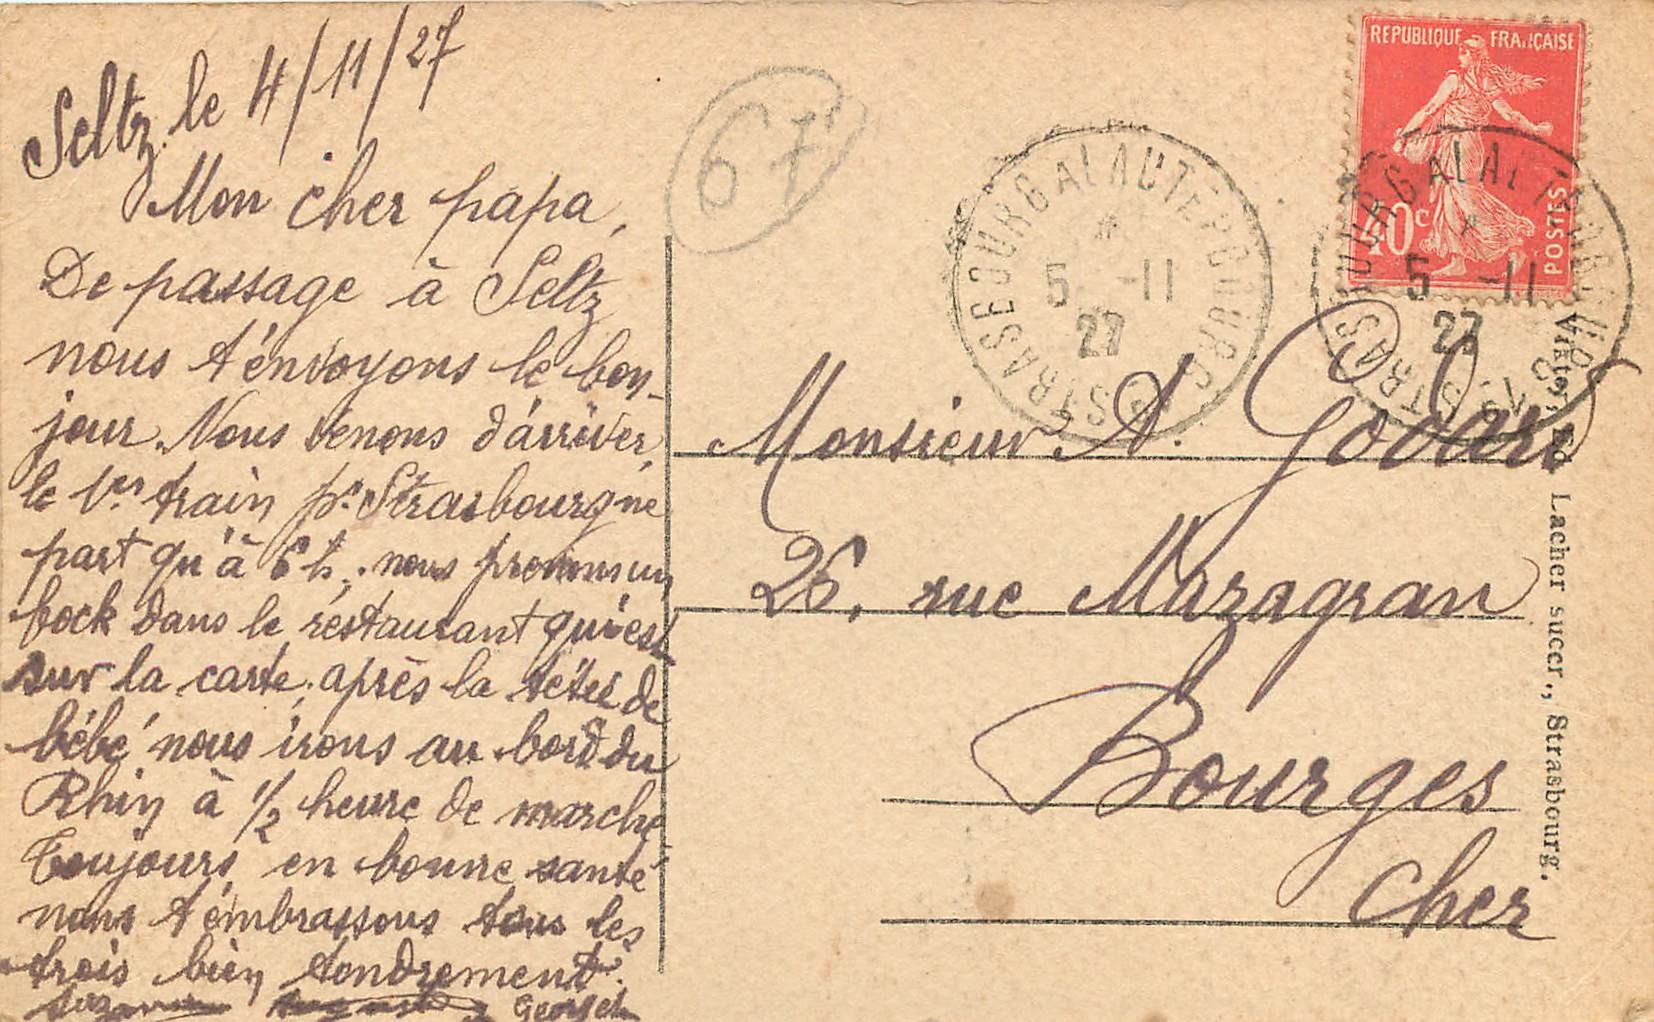 Seltz, le 4/11/27
Mon cher papa,
De passage à Seltz
nous t'envoyons le bon-
jour. Nous venons d'arriver,
le 1er train pr Strasbourg ne
part qu'à 6 h. nous prenons un
bock dans le restaurant qui est
sur la carte, après la tétée de
bébé nous irons au bord du
Rhin à 1/2 heure de marche
Toujours en bonne santé
nous t'embrassons tous les
trois bien tendrement.
Suzanne
67
REPUBLIQUE FRANÇAISE
POSTES
STRASBOURG A LAUTERBOURG
5 -11
27
STRASBOURG A LAUTERBOURG
5 -11
27
Monsieur A. Godard
26, rue Mazagran
Bourges
Cher
Lacher succr., Strasbourg.